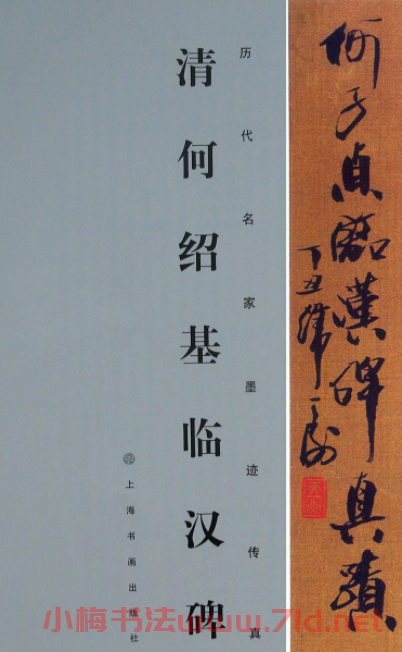 何子贞临漢碑真蹟
丁丑
历代名家墨迹传真
清何绍基临汉碑
上海书画出版社
小梅书法www.7ld.net